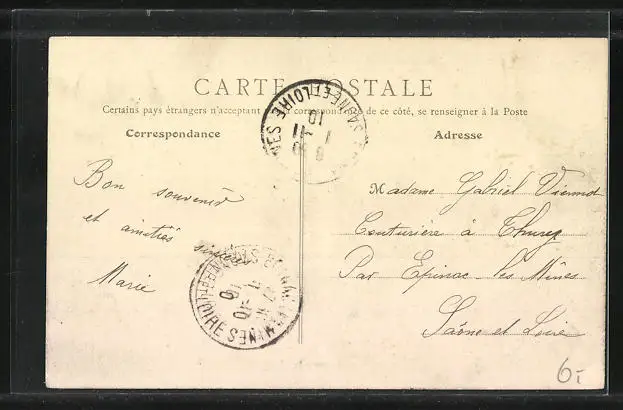 CARTE POSTALE
Certains pays étrangers n'acceptant pas de correspondance de ce côté, se renseigner à la Poste
Correspondance
Adresse
Bon souvenir
et amitiés
sincères
Marie
Madame Gabriel Viennot
Couturière à Thurey
Par Epinac-les-Mines
Saône et Loire
SAONE-ET-LOIRE
SAONE-ET-LOIRE
6.-